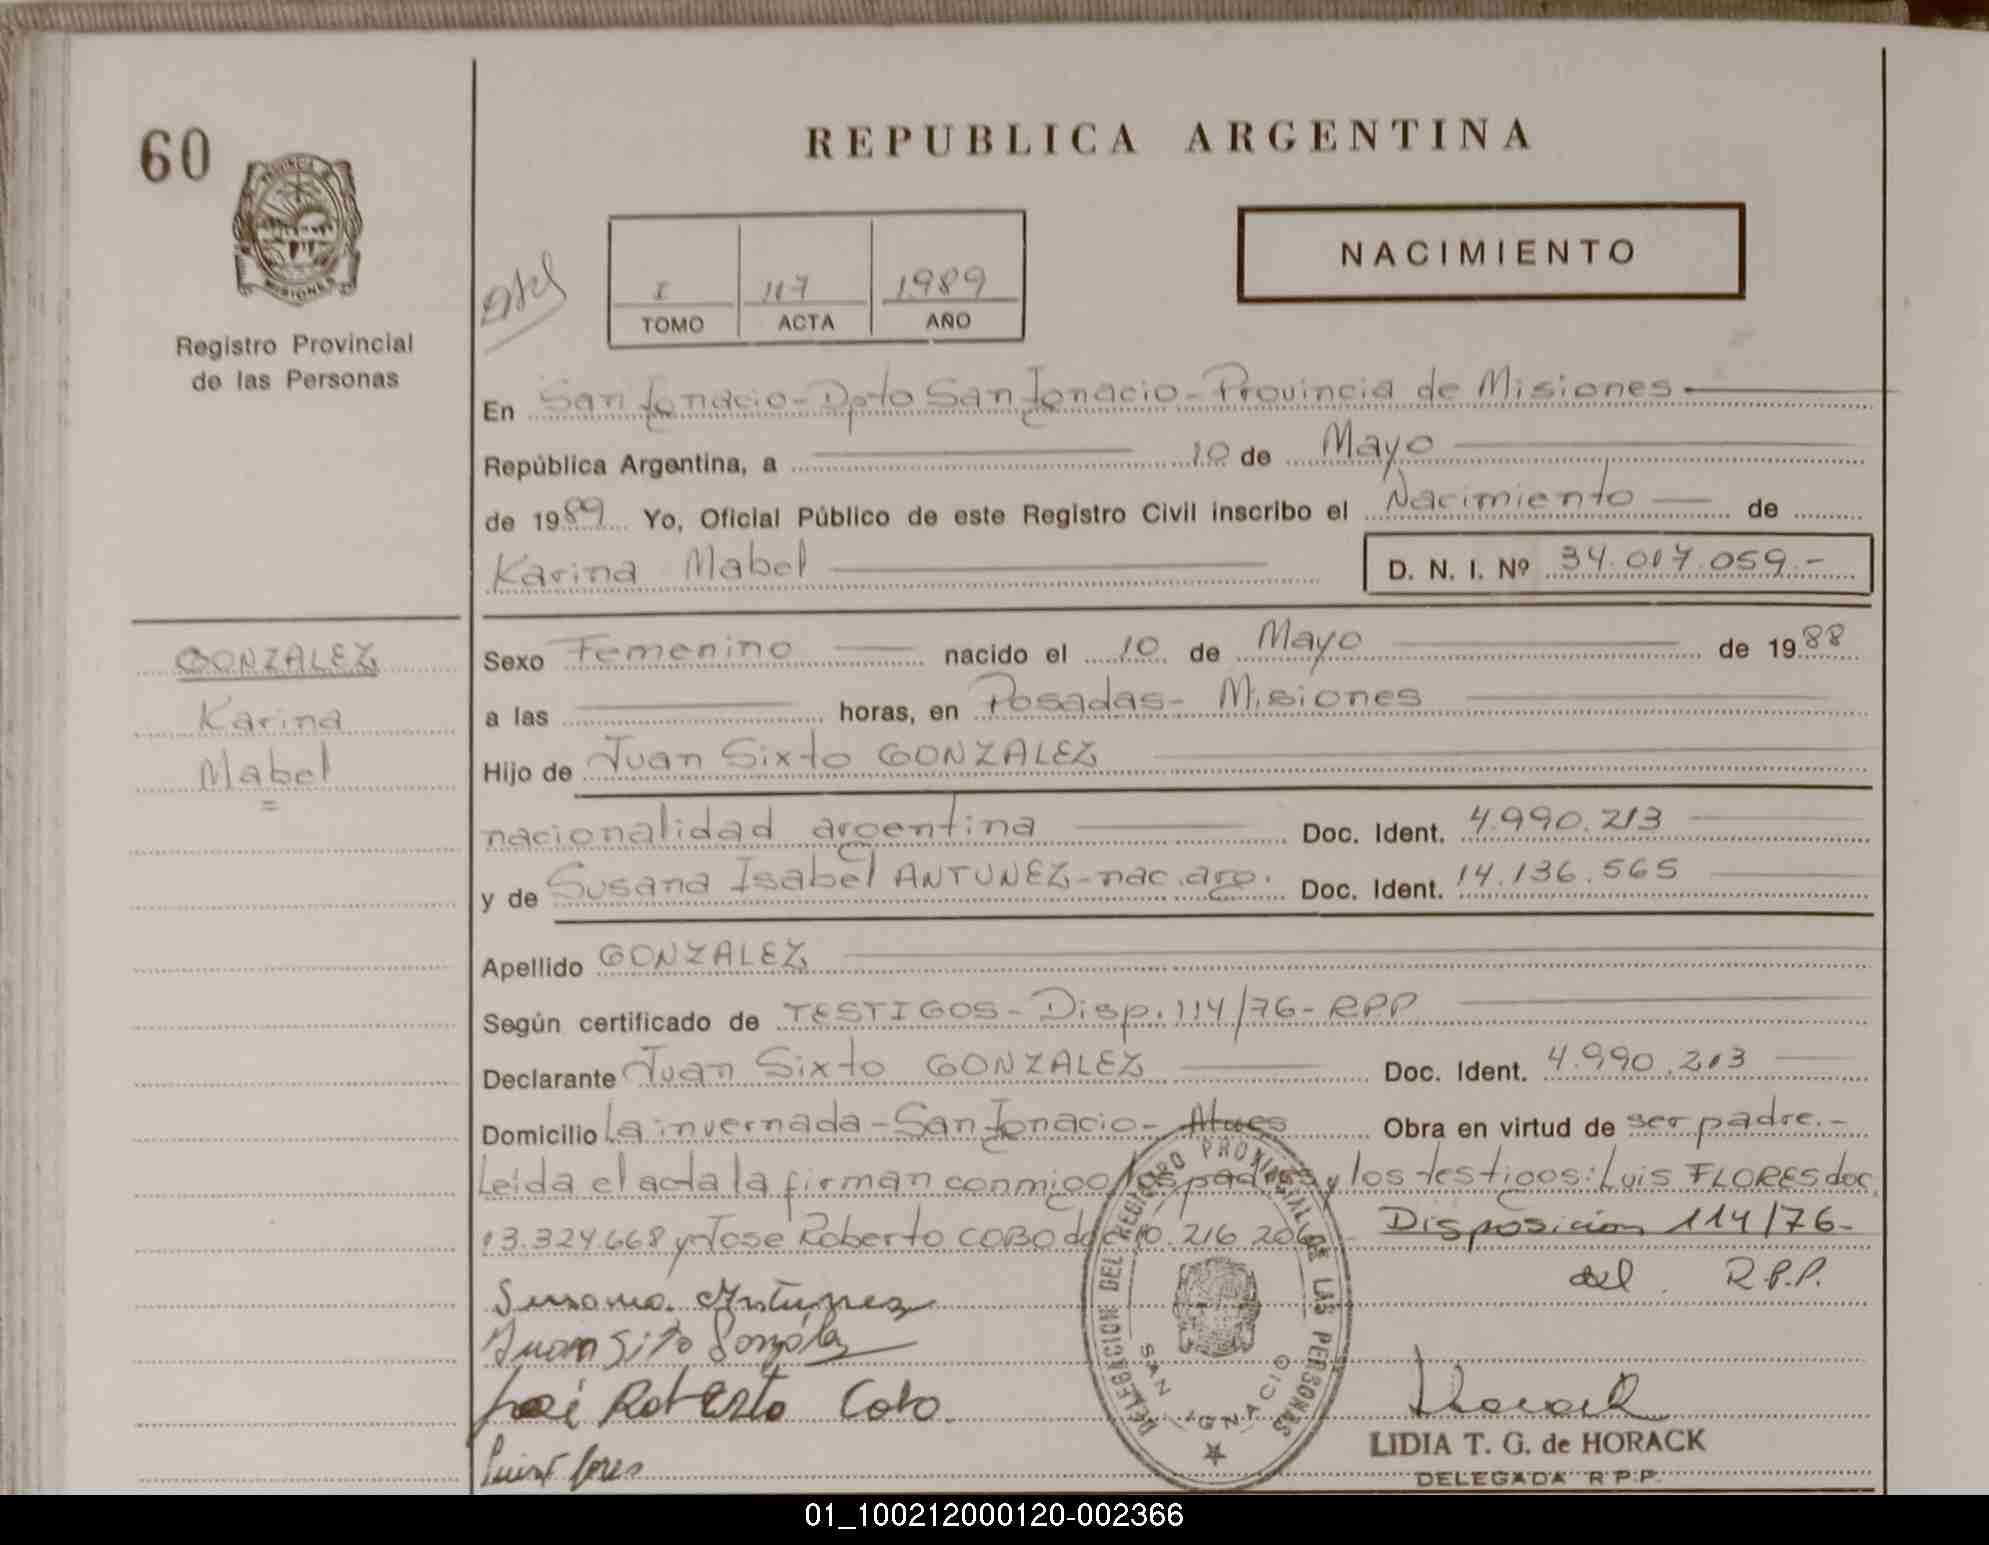 60
REPUBLICA ARGENTINA
PROVINCIA DE MISIONES
Registro Provincial
de las Personas
NACIMIENTO
I 117 1989
TOMO ACTA AÑO
En San Ignacio - Dpto San Ignacio - Provincia de Misiones
República Argentina, a 10 de Mayo
de 1989 Yo, Oficial Público de este Registro Civil inscribo el Nacimiento de
Karina Mabel D. N. I. Nº 34.017.059.-
GONZALEZ
Karina
Mabel
=
Sexo Femenino nacido el 10 de Mayo de 1988
a las horas, en Posadas - Misiones
Hijo de Juan Sixto GONZALEZ
nacionalidad argentina Doc. Ident. 4.990.213
y de Susana Isabel ANTUNEZ - nac. arg. Doc. Ident. 14.136.565
Apellido GONZALEZ
Según certificado de TESTIGOS - Disp. 114/76 - RPP
Declarante Juan Sixto GONZALEZ Doc. Ident. 4.990.213
Domicilio La invernada - San Ignacio - Mnes Obra en virtud de ser padre.-
Leida el acta la firman conmigo los padres y los testigos: Luis FLORES doc.
13.324.668 y Jose Roberto COBO doc 10.216.206 Disposicion 114/76-
del R.P.P.
Susana Antunez
Juan Sixto González
José Roberto Cobo.
Luis Flores
DELEGACION DEL REGISTRO PROVINCIAL DE LAS PERSONAS
SAN IGNACIO
LIDIA T. G. de HORACK
DELEGADA R.P.P.
01_100212000120-002366